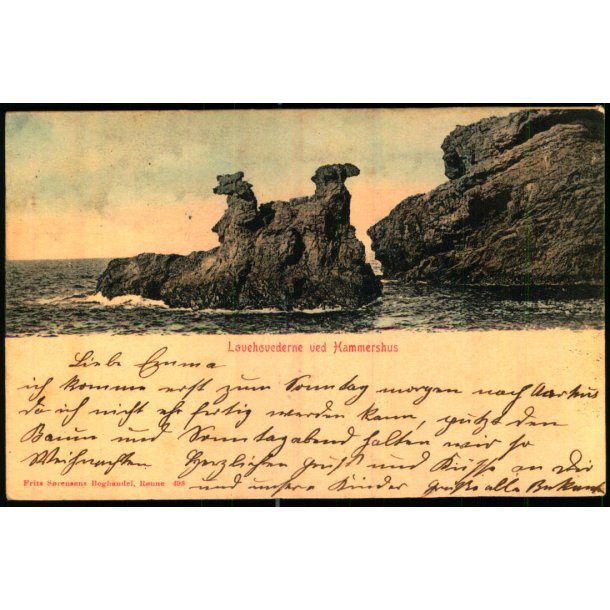 Løvehovederne ved Hammershus
Liebe Emma
ich komme erst zum Sonntag morgen nach Aarhus
da ich nicht eh fertig werden kann, putzt den
Baum und Sonntagabend halten wir so
Weihnachten. Herzlichen Gruß und Küsse an Dir
und unsere Kinder Grüße alle Bekannt
Frits Sørensens Boghandel, Rønne 493